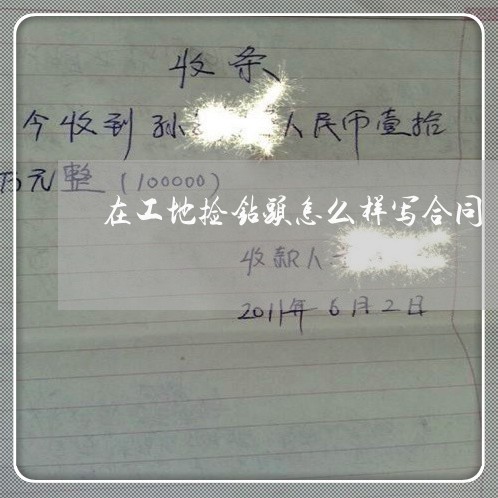 收条
今收到孙 人民币壹拾
万元整（100000）
在工地捡钻头怎么样写合同
收款人
2011年6月2日